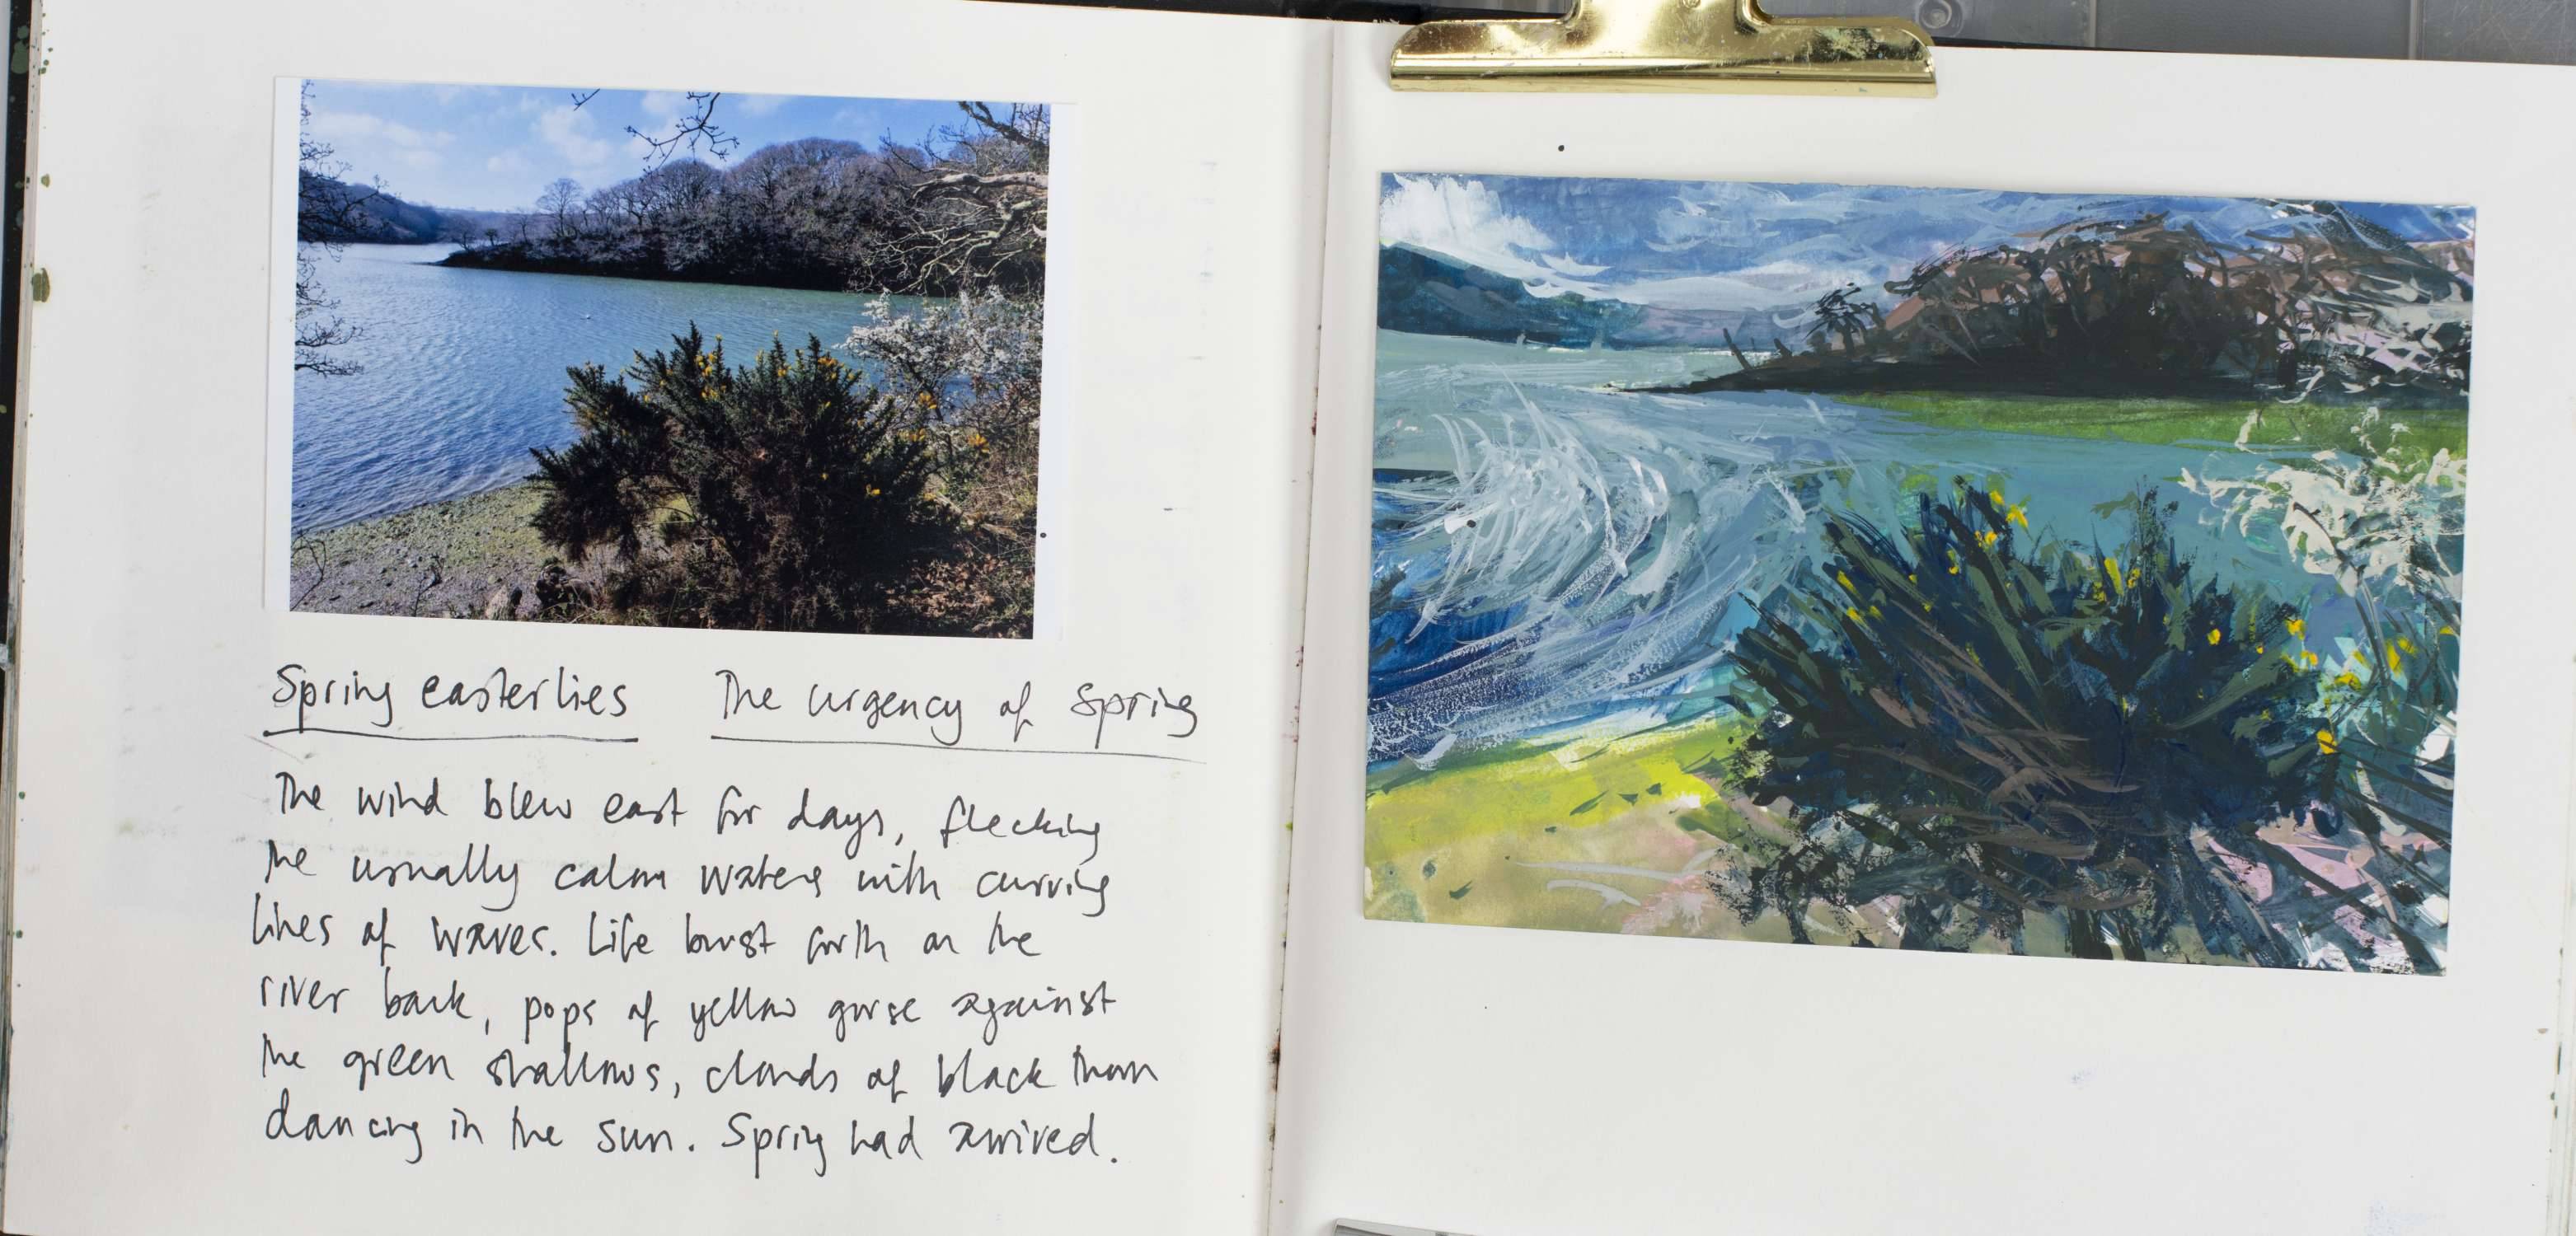 Spring easterlies The urgency of Spring
The wind blew east for days, flecking
the usually calm waters with curving
lines of waves. Life burst forth on the
river bank, pops of yellow gorse against
the green shallows, clouds of black thorn
dancing in the sun. Spring had arrived.